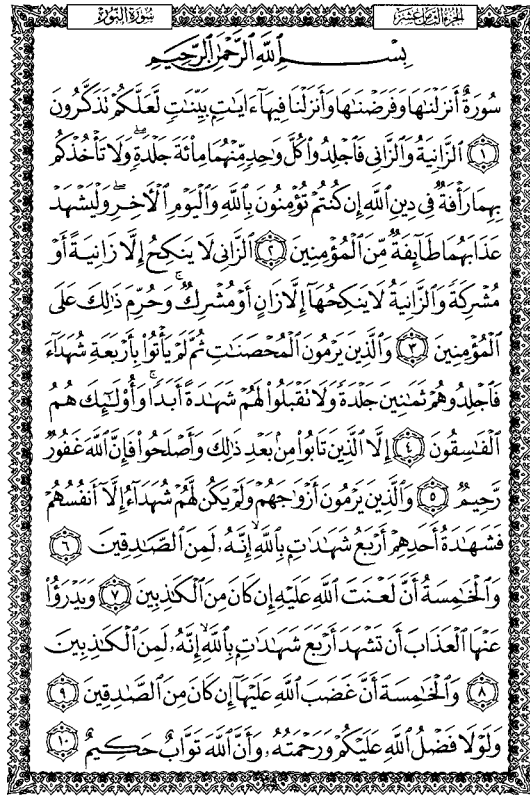 سُورَةُ النُّورِ الجُزْءُ الثَّامِنَ عَشَرَ
بِسْمِ ٱللَّهِ ٱلرَّحْمَٰنِ ٱلرَّحِيمِ
سُورَةٌ أَنزَلْنَٰهَا وَفَرَضْنَٰهَا وَأَنزَلْنَا فِيهَآ ءَايَٰتٍۭ بَيِّنَٰتٍ لَّعَلَّكُمْ تَذَكَّرُونَ
١ ٱلزَّانِيَةُ وَٱلزَّانِى فَٱجْلِدُوا۟ كُلَّ وَٰحِدٍ مِّنْهُمَا مِا۟ئَةَ جَلْدَةٍ ۖ وَلَا تَأْخُذْكُم
بِهِمَا رَأْفَةٌ فِى دِينِ ٱللَّهِ إِن كُنتُمْ تُؤْمِنُونَ بِٱللَّهِ وَٱلْيَوْمِ ٱلْـَٔاخِرِ ۖ وَلْيَشْهَدْ
عَذَابَهُمَا طَآئِفَةٌ مِّنَ ٱلْمُؤْمِنِينَ ٢ ٱلزَّانِى لَا يَنكِحُ إِلَّا زَانِيَةً أَوْ
مُشْرِكَةً وَٱلزَّانِيَةُ لَا يَنكِحُهَآ إِلَّا زَانٍ أَوْ مُشْرِكٌ ۚ وَحُرِّمَ ذَٰلِكَ عَلَى
ٱلْمُؤْمِنِينَ ٣ وَٱلَّذِينَ يَرْمُونَ ٱلْمُحْصَنَٰتِ ثُمَّ لَمْ يَأْتُوا۟ بِأَرْبَعَةِ شُهَدَآءَ
فَٱجْلِدُوهُمْ ثَمَٰنِينَ جَلْدَةً وَلَا تَقْبَلُوا۟ لَهُمْ شَهَٰدَةً أَبَدًا ۚ وَأُو۟لَٰٓئِكَ هُمُ
ٱلْفَٰسِقُونَ ٤ إِلَّا ٱلَّذِينَ تَابُوا۟ مِنۢ بَعْدِ ذَٰلِكَ وَأَصْلَحُوا۟ فَإِنَّ ٱللَّهَ غَفُورٌ
رَّحِيمٌ ٥ وَٱلَّذِينَ يَرْمُونَ أَزْوَٰجَهُمْ وَلَمْ يَكُن لَّهُمْ شُهَدَآءُ إِلَّآ أَنفُسُهُمْ
فَشَهَٰدَةُ أَحَدِهِمْ أَرْبَعُ شَهَٰدَٰتٍۭ بِٱللَّهِ ۙ إِنَّهُۥ لَمِنَ ٱلصَّٰدِقِينَ ٦
وَٱلْخَٰمِسَةُ أَنَّ لَعْنَتَ ٱللَّهِ عَلَيْهِ إِن كَانَ مِنَ ٱلْكَٰذِبِينَ ٧ وَيَدْرَؤُا۟
عَنْهَا ٱلْعَذَابَ أَن تَشْهَدَ أَرْبَعَ شَهَٰدَٰتٍۭ بِٱللَّهِ ۙ إِنَّهُۥ لَمِنَ ٱلْكَٰذِبِينَ
٨ وَٱلْخَٰمِسَةَ أَنَّ غَضَبَ ٱللَّهِ عَلَيْهَآ إِن كَانَ مِنَ ٱلصَّٰدِقِينَ ٩
وَلَوْلَا فَضْلُ ٱللَّهِ عَلَيْكُمْ وَرَحْمَتُهُۥ وَأَنَّ ٱللَّهَ تَوَّابٌ حَكِيمٌ ١٠